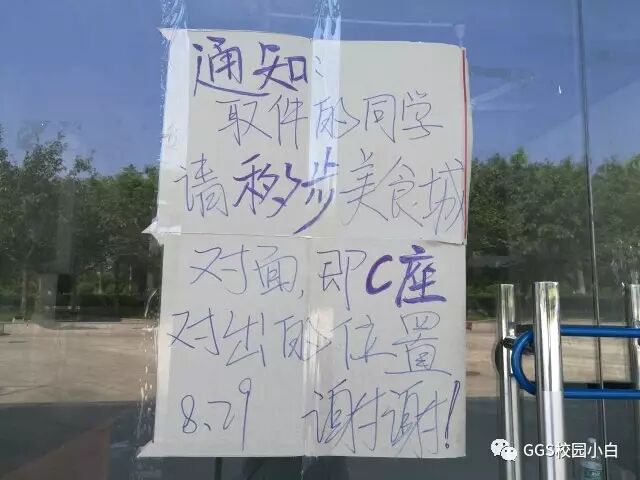 通知:
取件的同学
请移步美食城
对面,即C座
对出的位置
8.29 谢谢!
GGS校园小白